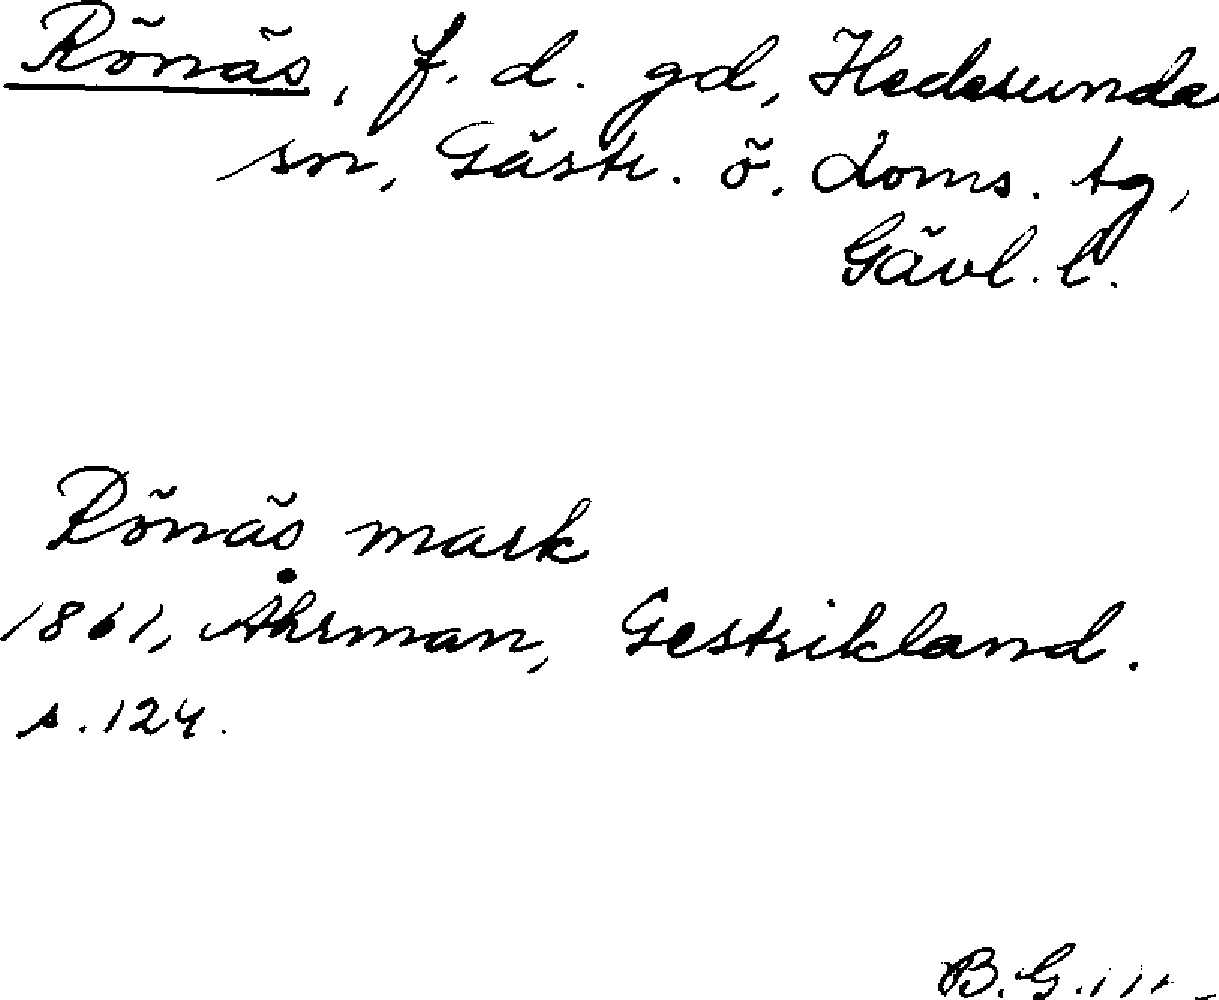 Rönäs, f. d. gd, Hedesunda
sn, Gästr. ö. doms. tg,
Gävl. l.
Rönäs mark
1861, Åhrman, Gestrikland.
s. 124.
B. G.